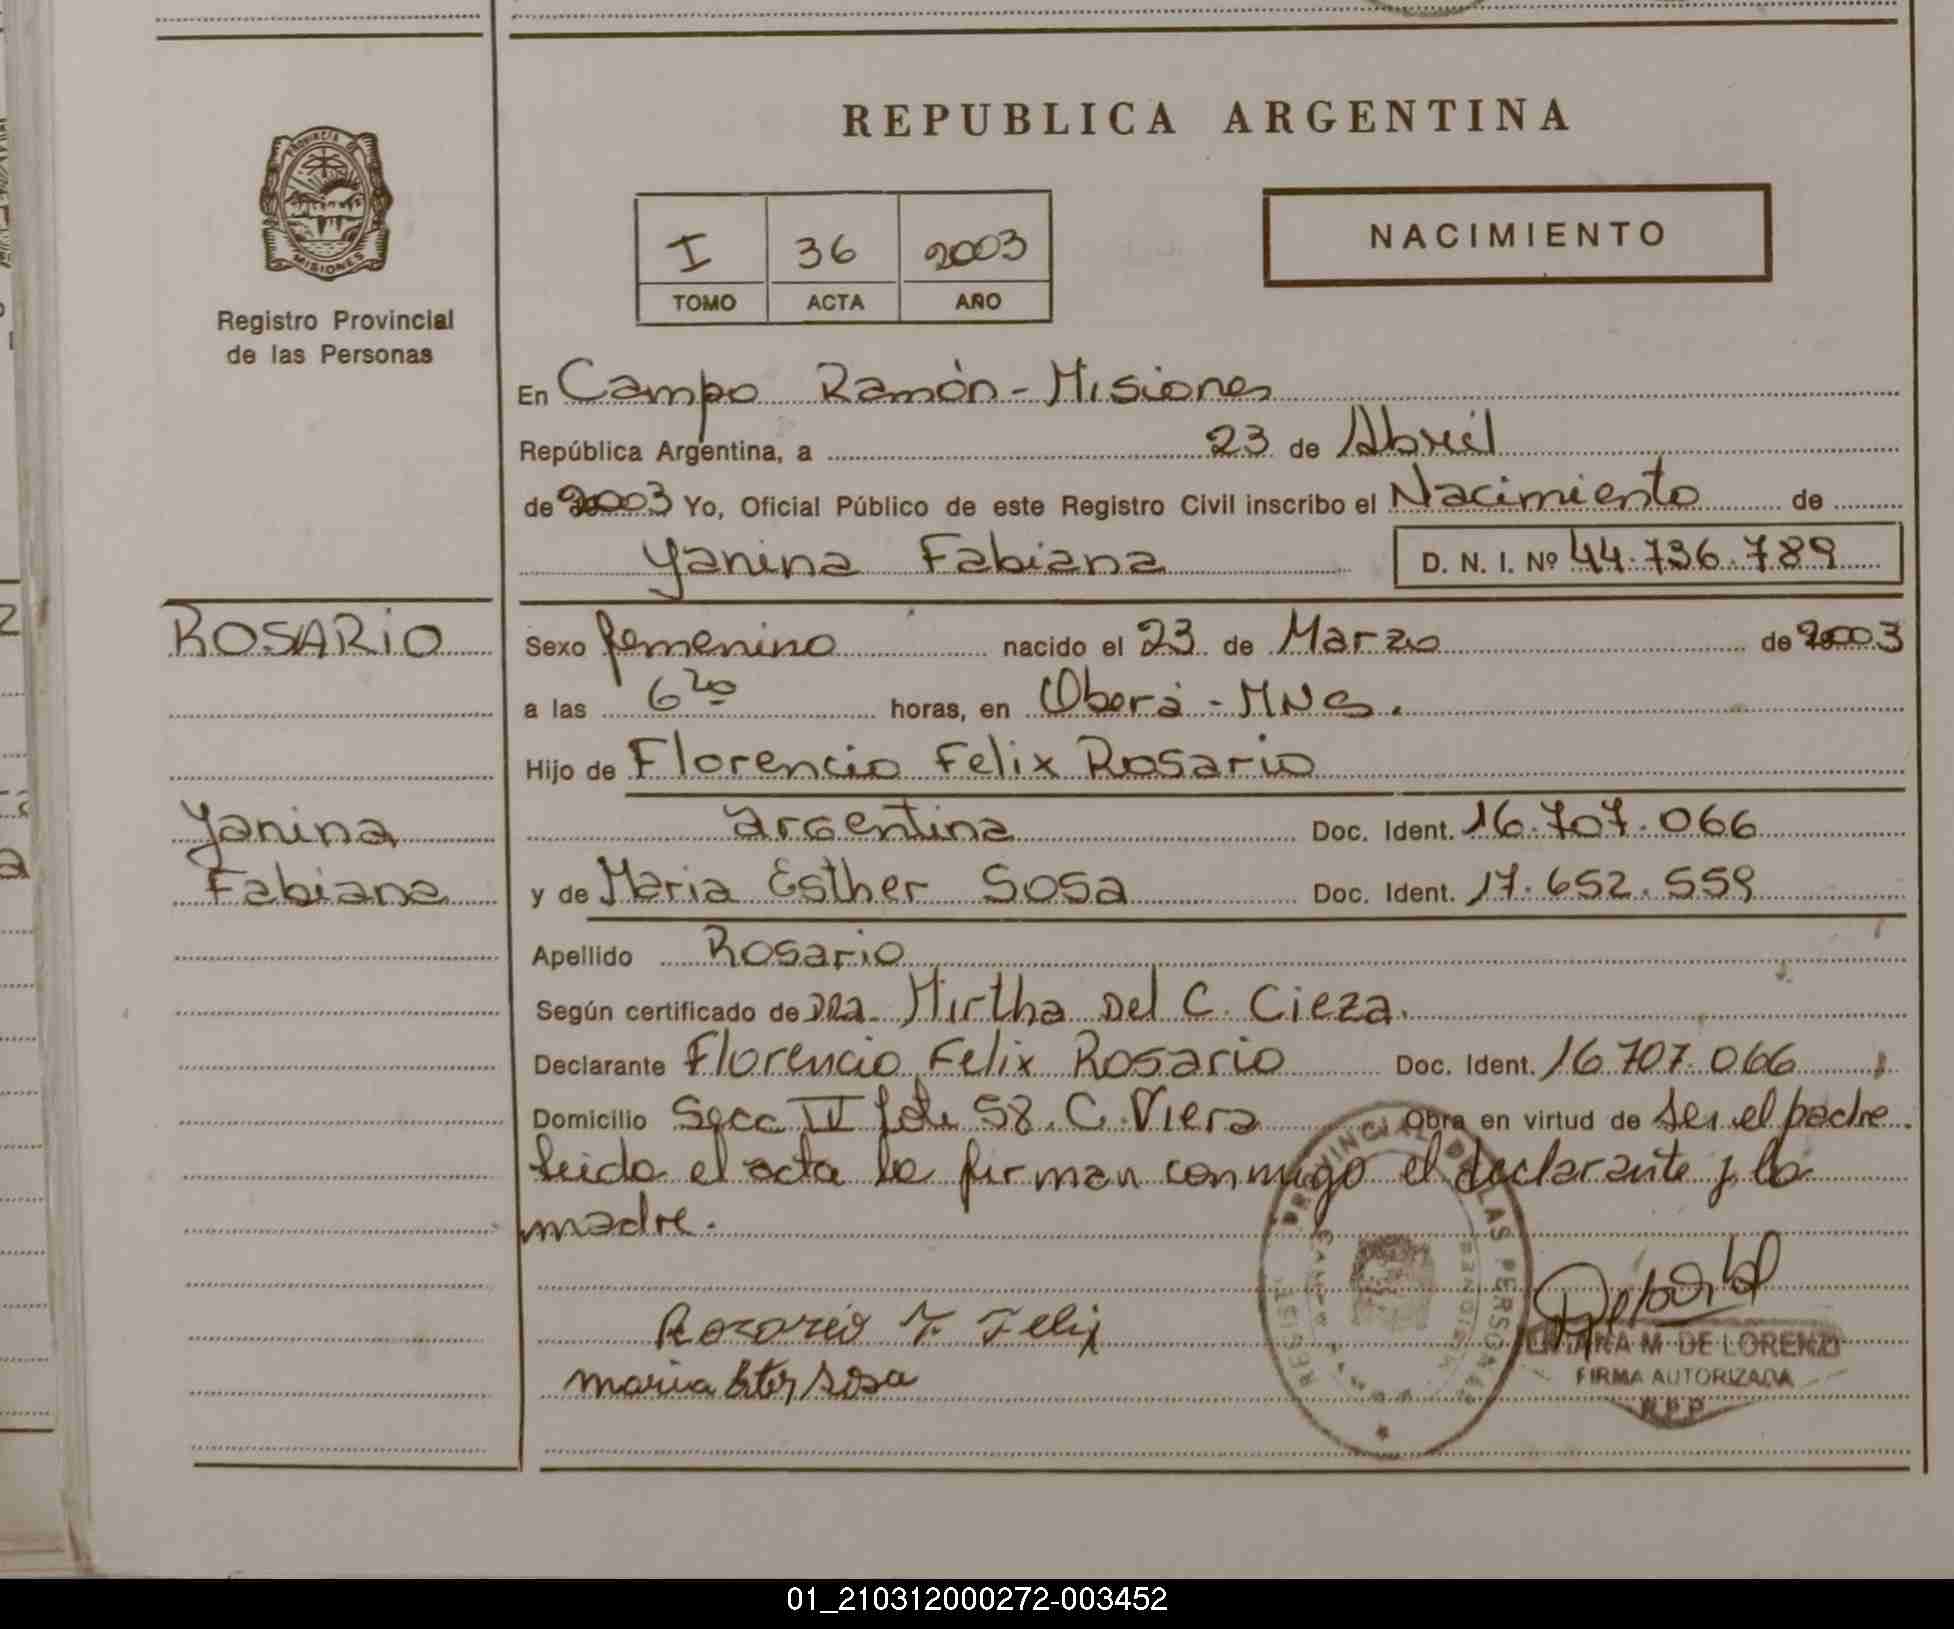 REPUBLICA ARGENTINA
PROVINCIA DE
MISIONES
Registro Provincial
de las Personas
I 36 2003
TOMO ACTA AÑO
NACIMIENTO
En Campo Ramón - Misiones
República Argentina, a 23 de Abril
de 2003 Yo, Oficial Público de este Registro Civil inscribo el Nacimiento de
Yanina Fabiana D. N. I. Nº 44.736.789
ROSARIO
Yanina
Fabiana
Sexo femenino nacido el 23 de Marzo de 2003
a las 6 20 horas, en Oberá - MNS.
Hijo de Florencio Felix Rosario
argentina Doc. Ident. 16.707.066
y de Maria Esther Sosa Doc. Ident. 17.652.559
Apellido Rosario
Según certificado de DRA. Mirtha Del C. Cieza.
Declarante Florencio Felix Rosario Doc. Ident. 16.707.066
Domicilio Secc IV Lote 58. C. Viera Obra en virtud de ser el padre.
leida el acta la firman conmigo el declarante y la
madre.
Rosario F. Felix
maria Ester sosa
PROVINCIAL DE LAS PERSONAS
M. DE LORENZI
FIRMA AUTORIZADA
R.P.P.
01_210312000272-003452